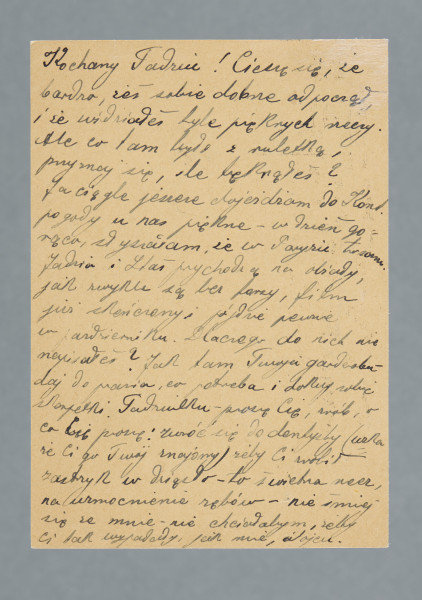 Kochany Tadziu! Cieszę się, że
bardzo, żeś sobie dobrze odpoczął,
i że widziałeś tyle pięknych rzeczy.
Ale co tam było z ruletką,
przyznaj się, ile
Ja ciągle jeszcze dojeżdżam do Konst.
pogody u nas piękne - w dzień go-
rąco, słyszałam, że w Paryżu
Jadzia i Staś przychodzą na obiady,
jak zwykle są bez forsy, film
już skończony, pójdzie pewnie
w październiku. Dlaczego do nich nie
napisałeś? Jak tam Twoja garderoba
daj do prania, co potrzeba i
skarpetki. Tadziulku - proszę Cię, zrób, o
co Cię proszę: zwróć się do dentysty
że Ci go Twój znajomy) żeby Ci zrobił
zastrzyk w dziąsło - to świetna rzecz,
na wzmocnienie zębów - nie śmiej
się ze mnie - nie chciałabym, żeby
Ci tak wypadały, jak mnie,